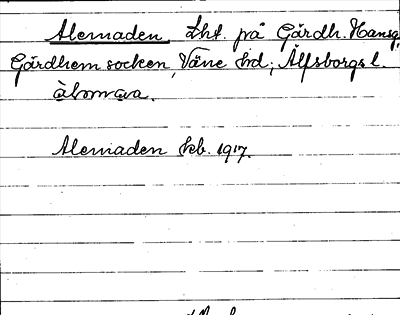 Alemaden, Lht. på Gärdh. Hansg.
Gärdhem socken, Väne hd; Älfsborgs l.
Alemaden kb. 1917.